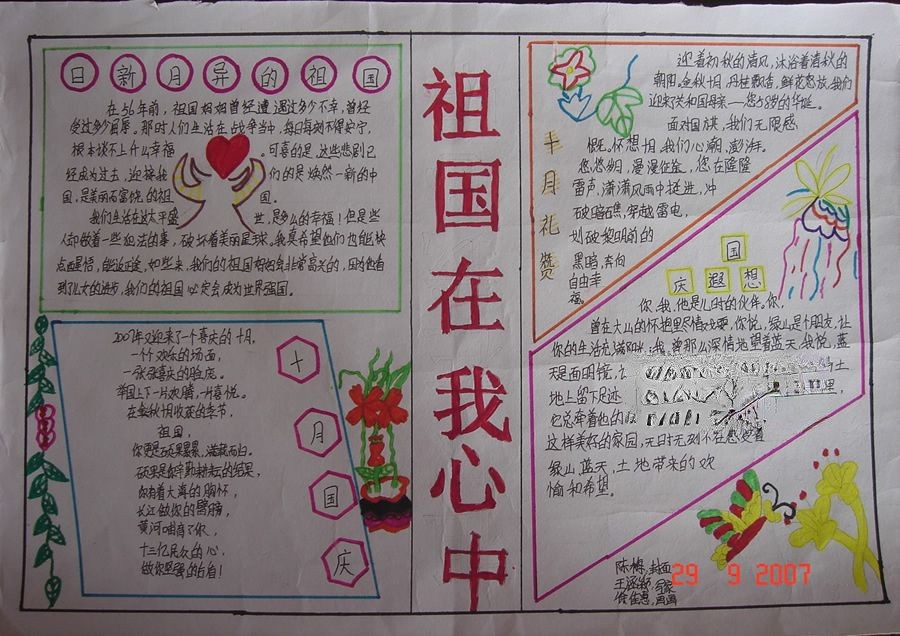 日新月异的祖国
在56年前，祖国妈妈曾经遭遇过多少不幸，曾经
受过多少屈辱。那时人们生活在战争当中，每日每刻不得安宁，
根本谈不上什么幸福。可喜的是，这些悲剧已
经成为过去，迎接我们的是焕然一新的中
国，是美丽而富饶的祖国。
我们生活在这太平盛世，是多么的幸福！但是些
人却做着一些犯法的事，破坏着美丽星球，我真希望他们也能快
点而醒悟，能返正途，如些来，我们的祖国妈妈会非常高兴的，因为他看
到儿女的进步，我们的祖国必定会成为世界强国。
十月国庆
2007年又迎来了一个喜庆的十月，
一个个欢乐的场面，
一张张喜庆的脸庞。
举国上下一片欢腾，一片喜悦。
在桑秋十月收获的季节，
祖国，
你更是硕果累累，满载而归。
硕果是你辛勤耕耘的结果，
你有着大海的胸怀，
长江做你的臂膀，
黄河哺育了你，
十三亿民众的心，
做你坚强的后盾！
祖国在我心中
十月礼赞
迎着初秋的清风，沐浴着清秋的
朝阳，金秋十月，丹桂飘香，鲜花怒放，我们
迎来了共和国母亲——您58岁的华诞。
面对国旗，我们无限感
慨，怀想十月，我们心潮澎湃。
悠悠岁月，漫漫征途，您在隆隆
雷声，潇潇风雨中挺进，冲
破暗礁，穿越雷电，
划破黎明前的
黑暗，奔向
自由幸
福。
国庆遐想
你，我，他是儿时的伙伴。你，
曾在大山的怀抱里尽情玩耍，你说，绿山是个朋友，让
你的生活充满阳光；我，曾那么深情地望着蓝天，我说，蓝
天是面明镜，让
土
地上留下足迹
里，
它总牵着他的
这样美好的家园，无时无刻不在感受着
绿山、蓝天、土地带来的欢
愉和希望。
29 9 2007